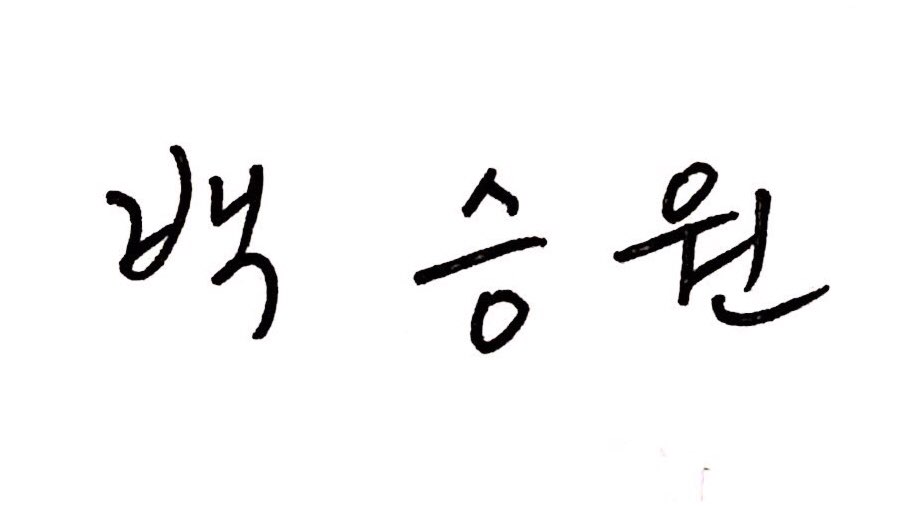 백 승 원